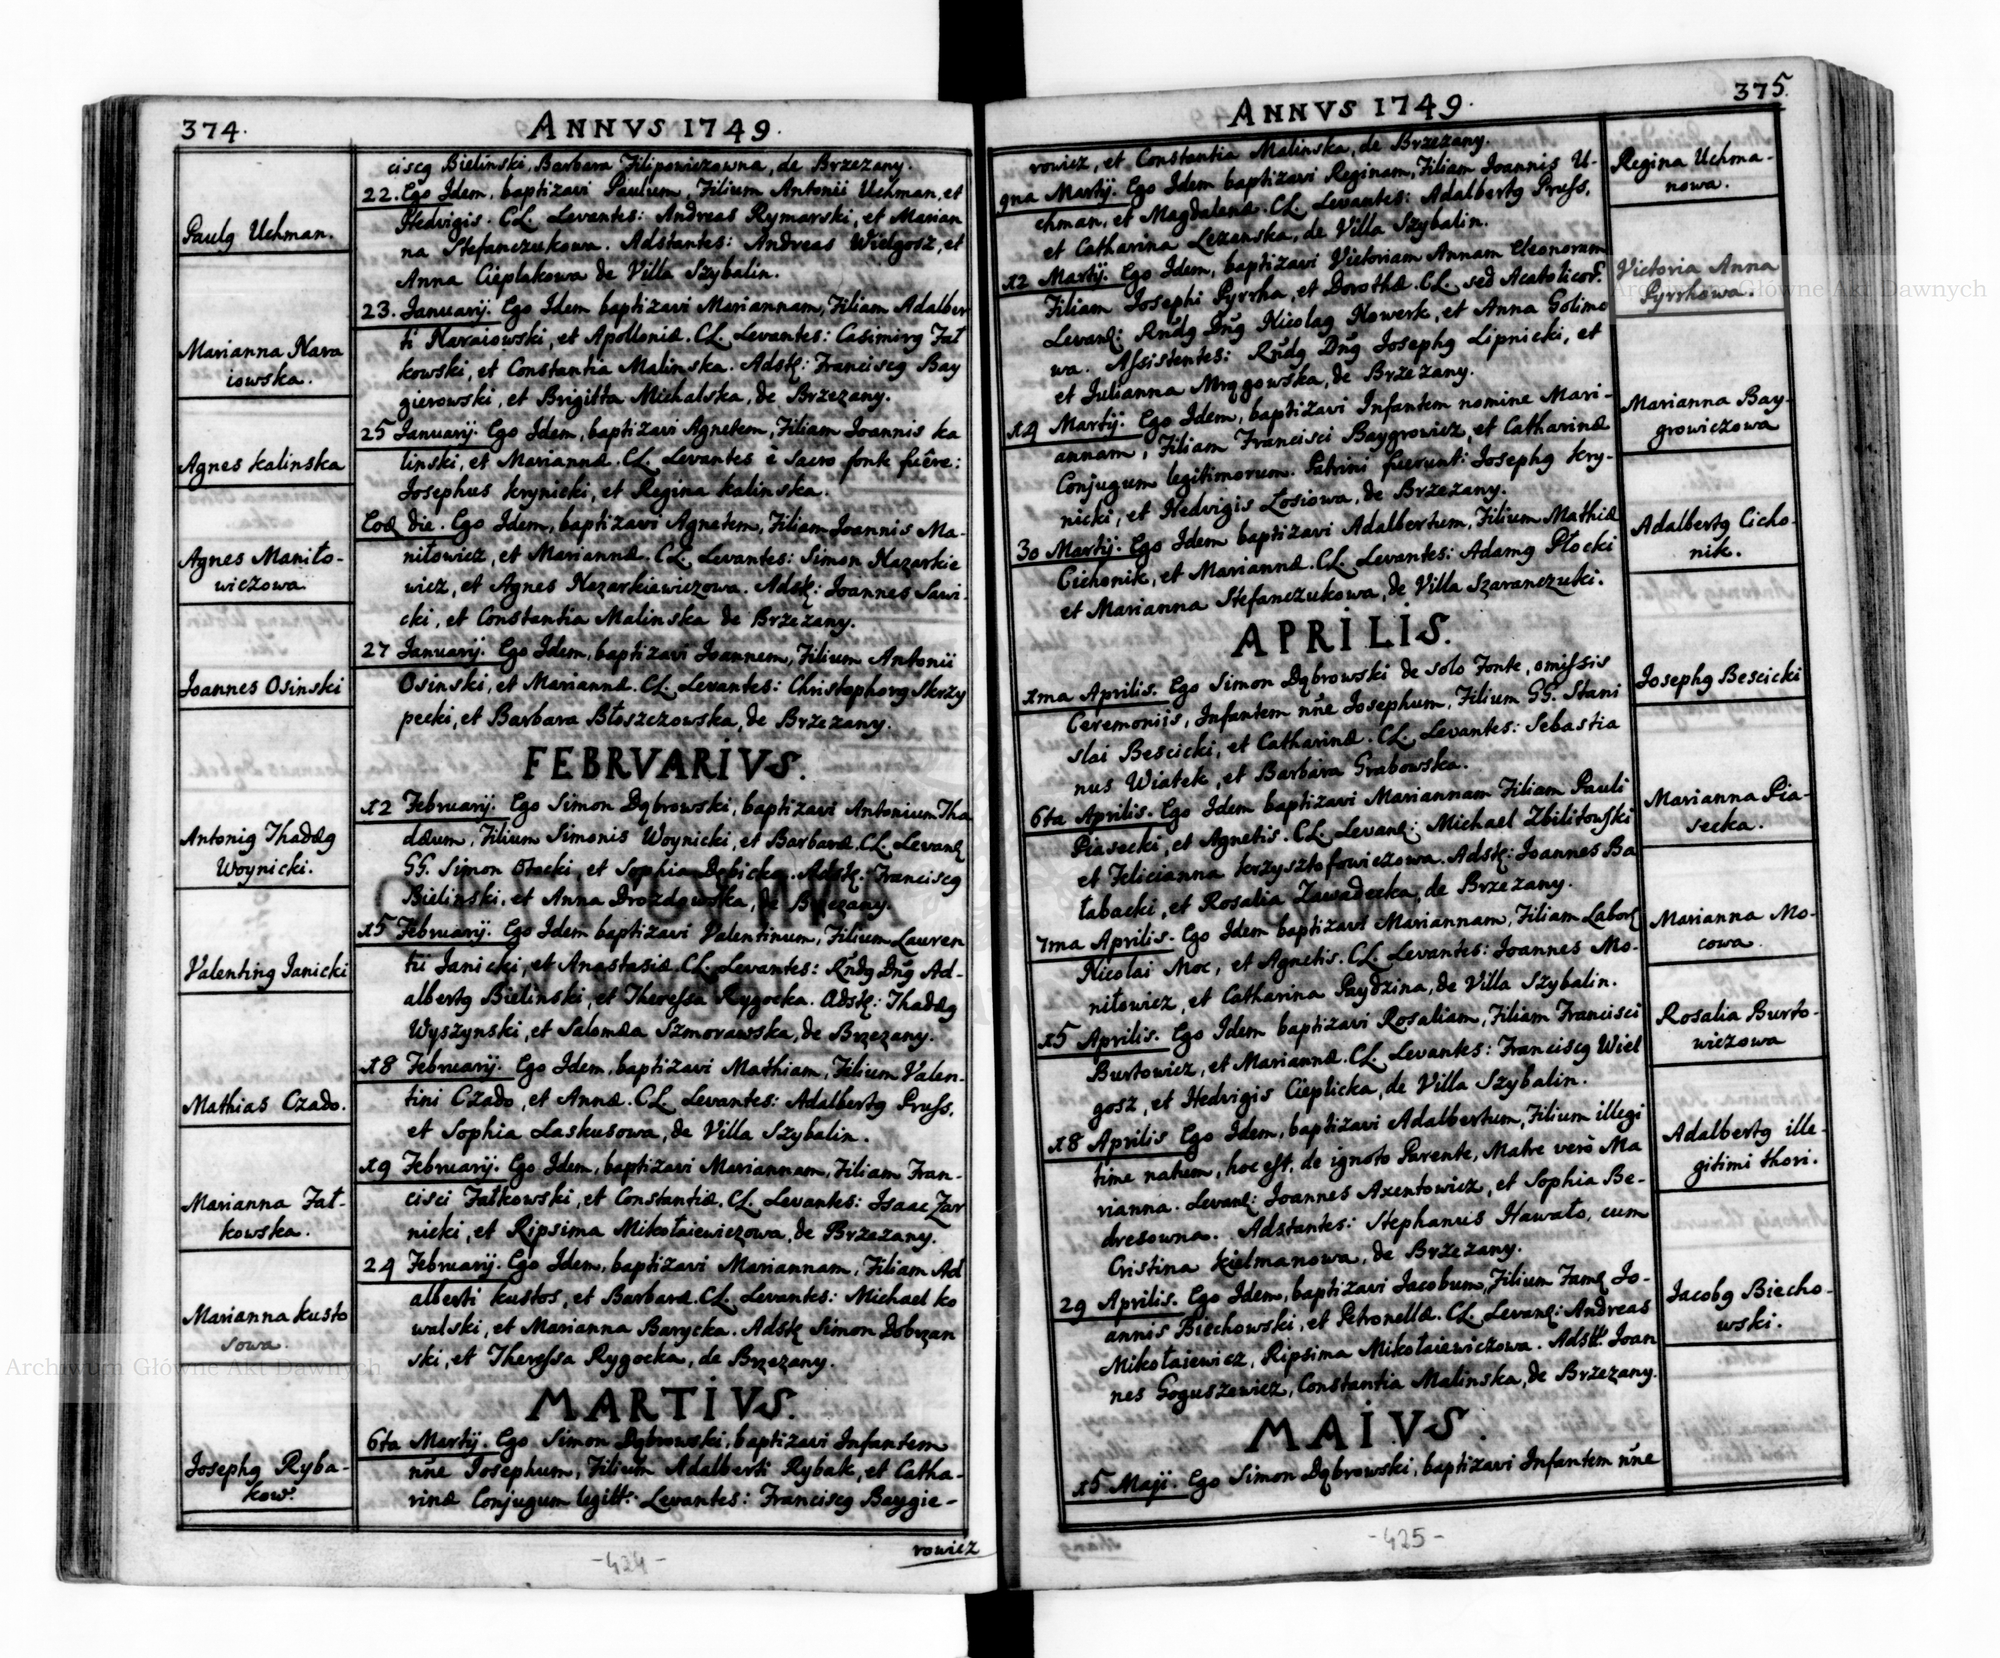 374.
ANNVS 1749.
Paulg Uchman.
Marianna Nara
iowska.
Agnes Kalinska
Agnes Maniło-
wiczowa
Joannes Osinski
Antonig Thadæg
Woynicki.
Valenting Janicki
Mathias Czado.
Marianna Fał-
kowska.
Marianna Kusto
sowa.
Josephg Ryba-
kow.
ciscg Bielinski, Barbara Filipowiczowna, de Brzezany.
22. Ego Idem, baptizavi Paulum, Filium Antonii Uchman, et
Hedvigis. CL. Levantes: Andreas Rymarski, et Marian
na Stefanczukowa. Adstantes: Andreas Wielgosz, et
Anna Cieplakowa de Villa Szybalin.
23. Januarij. Ego Idem baptizavi Mariannam, Filiam Adalber
ti Naraiowski, et Apolloniæ. CL. Levantes: Casimirg Fał
kowski, et Constantia Malinska. Adstt: Franciscg Bay
gierowski, et Brigitta Michalska, de Brzezany.
25 Januarij. Ego Idem, baptizavi Agnetem, Filiam Joannis Ka
linski, et Mariannæ. CL. Levantes è Sacro fonte fuêre:
Josephus Krynicki, et Regina Kalinska.
Eođ die. Ego Idem, baptizavi Agnetem, Filiam Joannis Ma-
niłowicz, et Mariannæ. CL. Levantes: Simon Nazarkie
wicz, et Agnes Nazarkiewiczowa. Adstt: Joannes Sawi-
cki, et Constantia Malinska de Brzezany.
27 Januarij. Ego Idem, baptizavi Joannem, Filium Antonii
Osinski, et Mariannæ. CL. Levantes: Christophorg Skrzy
pecki, et Barbara Błoszczowska, de Brzezany.
FEBRVARIVS.
12 Februarij. Ego Simon Dąbrowski, baptizavi Antonium Tha
dæum, Filium Simonis Woynicki, et Barbaræ. CL. Levant
GG. Simon Otocki, et Sophia Dębicka. Adstt: Franciscg
Bielinski, et Anna Drozdowska, de Brzezany.
15 Februarij. Ego Idem baptizavi Valentinum, Filium Lauren
tii Janicki, et Anastasiæ. CL. Levantes: Rndg Dng Ad-
albertg Bielinski, et Theressa Rygocka. Adstt: Thadæg
Wyszynski, et Salomæa Szmorawska, de Brzezany.
18 Februarij. Ego Idem, baptizavi Mathiam, Filium Valen-
tini Czado, et Annæ. CL Levantes: Adalbertg Pruss,
et Sophia Laskusowa, de Villa Szybalin.
19 Februarij. Ego Idem, baptizavi Mariannam, Filiam Fran-
cisci Fałkowski, et Constantiæ. CL. Levantes: Isaac Zar
nicki, et Ripsima Mikołaiewiczowa, de Brzezany.
24 Februarij. Ego Idem, baptizavi Mariannam, Filiam Ad
alberti Kustos, et Barbaræ. CL. Levantes: Michael Ko
walski, et Marianna Barycka. Adstt Simon Dobrzan
ski, et Theressa Rygocka, de Brzezany.
MARTIVS.
6ta Martij. Ego Simon Dąbrowski, baptizavi Infantem
nne Josephum, Filium Adalberti Rybak, et Catha-
rinæ Conjugum legitt. Levantes: Franciscg Baygie-
rowicz
-424-
375.
ANNVS 1749.
rowicz, et Constantia Malinska, de Brzezany.
9na Martij. Ego Idem baptizavi Reginam, Filiam Joannis U-
chman, et Magdalenæ. CL. Levantes: Adalbertg Pruss,
et Catharina Lezanska, de Villa Szybalin.
12 Martij. Ego Idem, baptizavi Victoriam Annam Eleonoram
Filiam Josephi Pyrrha, et Dorothæ. CL. sed Acatolicor.
Levant: Rndg Dng Nicolag Nowerk, et Anna Golimo
wa. Assistentes: Rndg Dng Josephg Lipnicki, et
et Julianna Mrągowska, de Brzezany.
14 Martij. Ego Idem, baptizavi Infantem nomine Mari-
annam, Filiam Francisci Baygrowicz, et Catharinæ
Conjugum legitimorum. Patrini fuerunt: Josephg Kry-
nicki, et Hedvigis Łosiowa, de Brzezany.
30 Martij. Ego Idem baptizavi Adalbertum, Filium Mathiæ
Cichonik, et Mariannæ. CL. Levantes: Adamg Płocki
et Marianna Stefanczukowa, de Villa Szaranczuki.
APRILIS.
1ma Aprilis. Ego Simon Dąbrowski de solo Fonte, omissis
Ceremoniis, Infantem nne Josephum, Filium GG. Stani
slai Bescicki, et Catharinæ. CL. Levantes: Sebastia
nus Wiatek, et Barbara Grabowska.
6ta Aprilis. Ego Idem baptizavi Mariannam Filiam Pauli
Piasecki, et Agnetis. CL. Levant: Michael Zbilitowski
et Felicianna Krzysztofowiczowa. Adstt: Joannes Ba
łabacki, et Rosalia Zawadecka, de Brzezany.
7ma Aprilis. Ego Idem baptizavi Mariannam, Filiam Labor
Nicolai Moc, et Agnetis. CL. Levantes: Joannes Mo-
niłowicz, et Catharina Paydzina, de Villa Szybalin.
15 Aprilis. Ego Idem baptizavi Rosaliam, Filiam Francisci
Burtowicz, et Mariannæ. CL. Levantes: Franciscg Wiel
gosz, et Hedvigis Cieplicka, de Villa Szybalin.
18 Aprilis Ego Idem, baptizavi Adalbertum, Filium illegi
time natum, hoc est, de ignoto Parente, Matre verò Ma
rianna. Levant: Joannes Axentowicz, et Sophia Be-
dresowna. Adstantes: Stephanus Hawało, cum
Cristina Kielmanowa, de Brzezany.
29 Aprilis. Ego Idem, baptizavi Jacobum, Filium Fam Jo-
annis Biechowski, et Petronellæ. CL. Levant: Andreas
Mikołaiewicz, Ripsima Mikołaiewiczowa. Adstt. Joan
nes Goguszewicz, Constantia Malinska, de Brzezany.
MAIVS.
15 Maji. Ego Simon Dąbrowski, baptizavi Infantem nne
Regina Uchma-
nowa.
Victoria Anna
Pyrrhowa.
Marianna Bay-
growiczowa
Adalbertg Cicho-
nik.
Josephg Bescicki
Marianna Pia-
secka.
Marianna Mo-
cowa.
Rosalia Burto-
wiczowa
Adalbertg ille-
gitimi thori.
Jacobg Biecho-
wski.
-425-
Archiwum Główne Akt Dawnych
Archiwum Główne Akt Dawnych